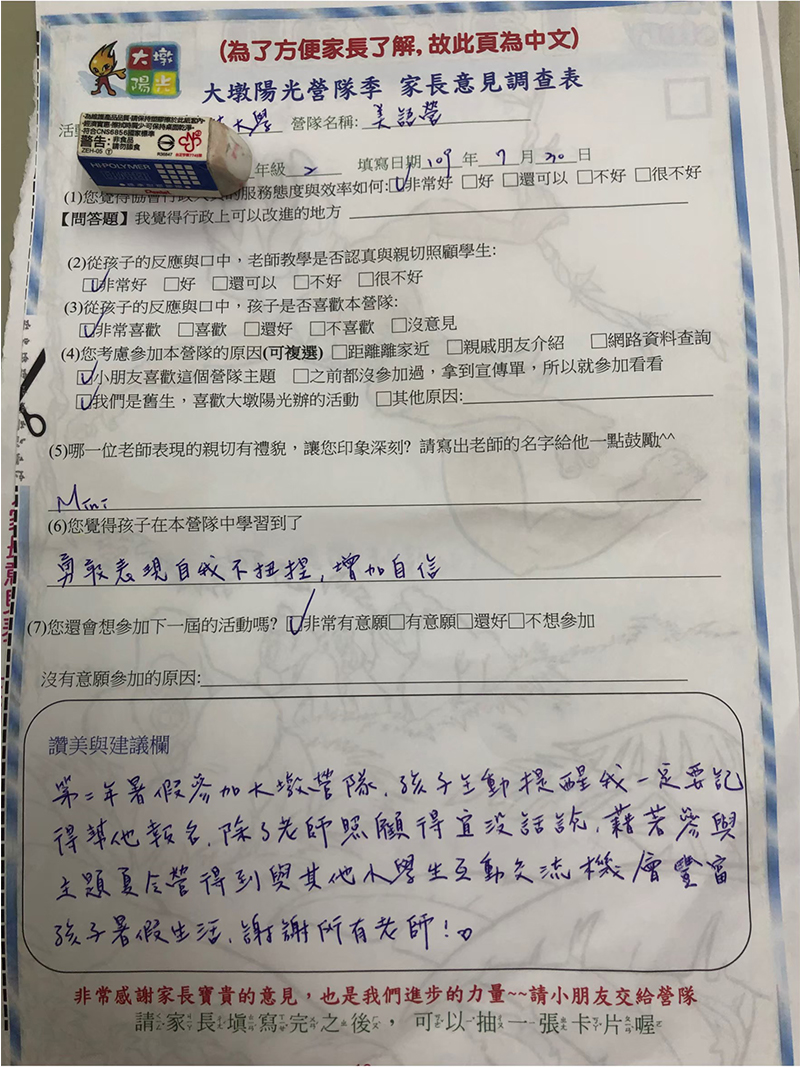 大墩
陽光
(為了方便家長了解, 故此頁為中文)
大墩陽光營隊季 家長意見調查表
為維護產品品質,請保持塑膠擦於此紙套內
經濟實惠,擦拭時屑少,可保持桌面乾淨。
符合CNS6856國家標準
警告:非食品
請勿誤食
ZEH-05
HI-POLYMER
Pentel
活 大學 營隊名稱: 美語營
年級 2 填寫日期 109 年 7 月 30 日
(1)您覺得協會行政人員的服務態度與效率如何:☑非常好 □好 □還可以 □不好 □很不好
【問答題】我覺得行政上可以改進的地方
(2)從孩子的反應與口中,老師教學是否認真與親切照顧學生:
☑非常好 □好 □還可以 □不好 □很不好
(3)從孩子的反應與口中,孩子是否喜歡本營隊:
☑非常喜歡 □喜歡 □還好 □不喜歡 □沒意見
(4)您考慮參加本營隊的原因(可複選) □距離離家近 □親戚朋友介紹 □網路資料查詢
☑小朋友喜歡這個營隊主題 □之前都沒參加過,拿到宣傳單,所以就參加看看
☑我們是舊生,喜歡大墩陽光辦的活動 □其他原因:
(5)哪一位老師表現的親切有禮貌,讓您印象深刻? 請寫出老師的名字給他一點鼓勵^^
Mini
(6)您覺得孩子在本營隊中學習到了
勇敢表現自我不扭捏,增加自信
(7)您還會想參加下一屆的活動嗎? ☑非常有意願□有意願□還好□不想參加
沒有意願參加的原因:
讚美與建議欄
第二年暑假參加大墩營隊,孩子主動提醒我一定要記
得幫他報名,除了老師照顧得宜沒話說,藉著參與
主題夏令營得到與其他小學生互動交流機會豐富
孩子暑假生活,謝謝所有老師!
非常感謝家長寶貴的意見,也是我們進步的力量~~請小朋友交給營隊
請家長填寫完之後,可以抽一張卡片喔